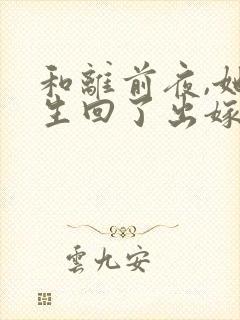 和離前夜,她
生回了出嫁
雲九安